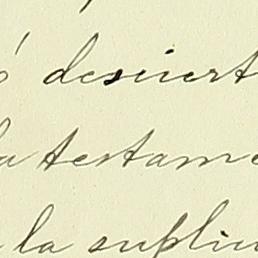 ó desiert
la testame
la suplic